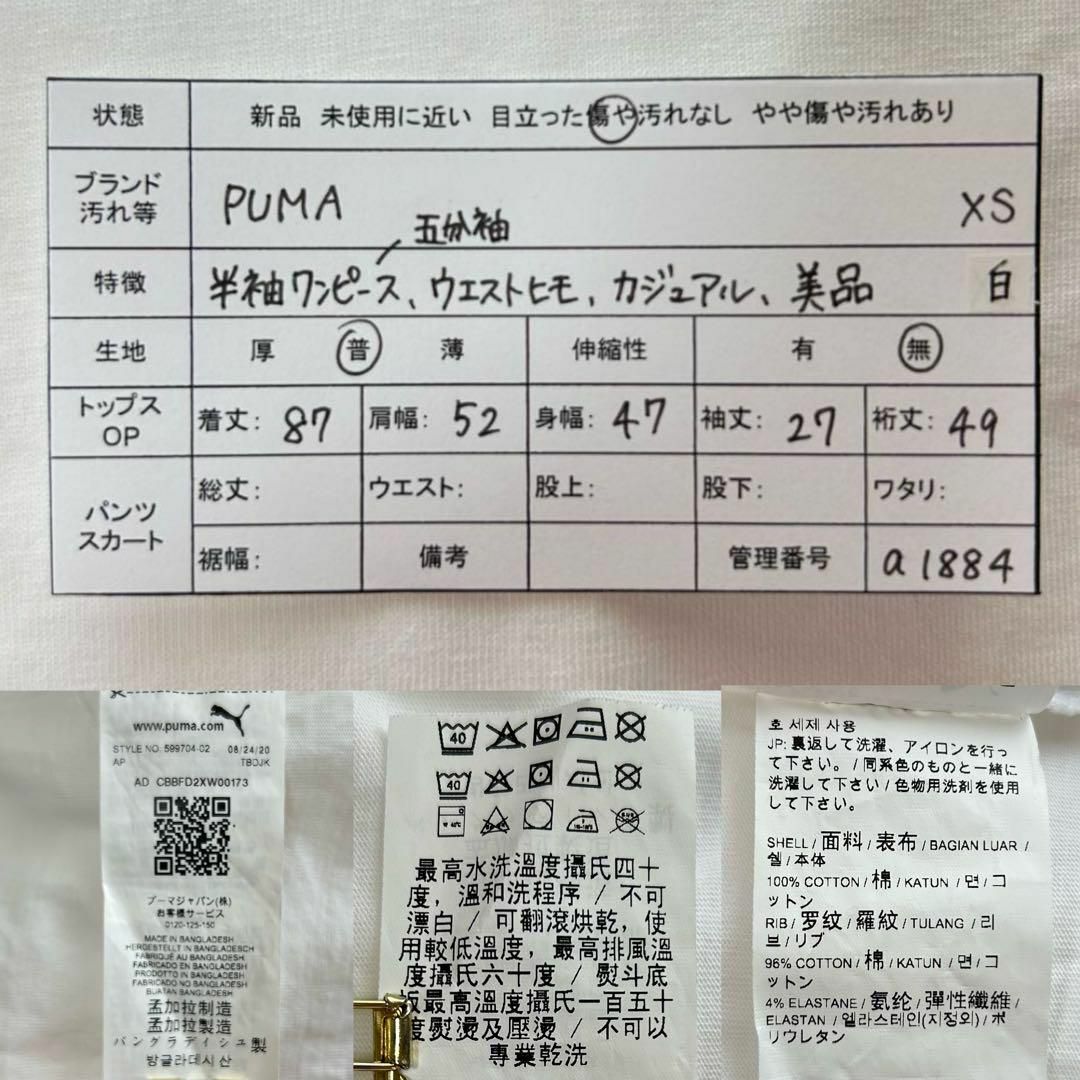 状態 新品 未使用に近い 目立った傷や汚れなし やや傷や汚れあり
ブランド
汚れ等
PUMA XS
五分袖
特徴 半袖ワンピース、ウエストヒモ、カジュアル、美品 白
生地 厚 普 薄 伸縮性 有 無
トップス
OP
着丈: 87 肩幅: 52 身幅: 47 袖丈: 27 裄丈: 49
パンツ
スカート
総丈: ウエスト: 股上: 股下: ワタリ:
裾幅: 備考 管理番号 a1884
www.puma.com
STYLE NO. 599704-02 08/24/20
AP TBDJK
AD CBBFD2XW00173
プーマジャパン(株)
お客様サービス
0120-125-150
MADE IN BANGLADESH
HERGESTELLT IN BANGLADESCH
FABRIQUÉ AU BANGLADESH
FABRICADO EN BANGLADESH
PRODOTTO IN BANGLADESH
FABRICADO NO BANGLADESH
BUATAN BANGLADESH
孟加拉制造
孟加拉製造
バングラデイシュ製
방글라데시 산
40
40
最高水洗溫度攝氏四十
度，溫和洗程序 / 不可
漂白 / 可翻滾烘乾，使
用較低溫度，最高排風溫
度攝氏六十度 / 熨斗底
板最高溫度攝氏一百五十
度熨燙及壓燙 / 不可以
專業乾洗
호 세제 사용
JP: 裏返して洗濯、アイロンを行っ
て下さい。 / 同系色のものと一緒に
洗濯して下さい / 色物用洗剤を使用
して下さい。
SHELL / 面料 / 表布 / BAGIAN LUAR /
쉘 / 本体
100% COTTON / 棉 / KATUN / 면 / コ
ットン
RIB / 罗纹 / 羅紋 / TULANG / 리
브 / リブ
96% COTTON / 棉 / KATUN / 면 / コ
ットン
4% ELASTANE / 氨纶 / 彈性纖維 /
ELASTAN / 엘라스테인(지정외) / ポ
リウレタン